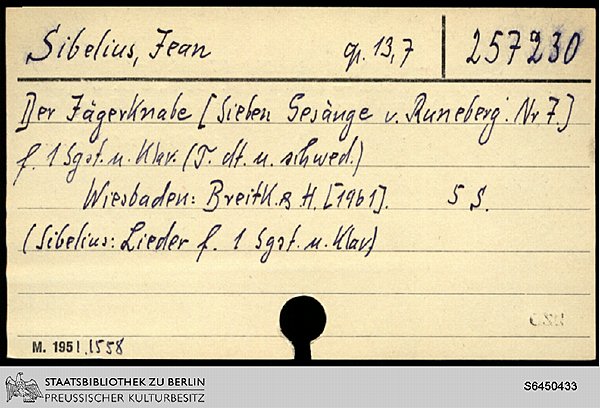 Sibelius, Jean op. 13,7 257230
Der Jägerknabe [Sieben Gesänge v. Runeberg. Nr 7.]
f. 1 Sgst. u. Klav. (T. dt. u. schwed.)
Wiesbaden: Breitk. & H. [1961]. 5 S.
(Sibelius: Lieder f. 1 Sgst. u. Klav)
M. 1951.1558
STAATSBIBLIOTHEK ZU BERLIN
PREUSSISCHER KULTURBESITZ
S6450433